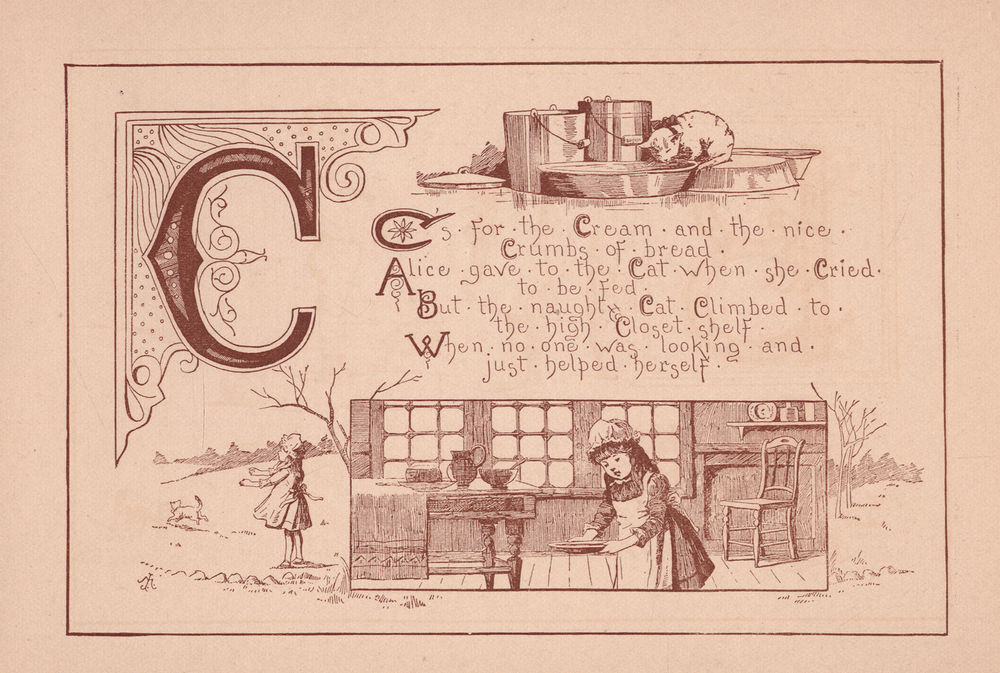 C
C's · for · the · Cream · and · the · nice ·
Crumbs · of · bread ·
Alice · gave · to · the · Cat · when · she · Cried ·
to · be · fed ·
But · the · naughty · Cat · Climbed · to ·
the · high · Closet · shelf ·
When · no · one · was · looking · and ·
just · helped · herself ·